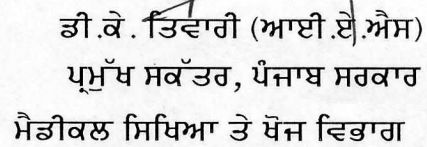 ਡੀ.ਕੇ. ਤਿਵਾਰੀ (ਆਈ.ਏ.ਐਸ)
ਪ੍ਰਮੁੱਖ ਸਕੱਤਰ, ਪੰਜਾਬ ਸਰਕਾਰ
ਮੈਡੀਕਲ ਸਿਖਿਆ ਤੇ ਖੋਜ ਵਿਭਾਗ